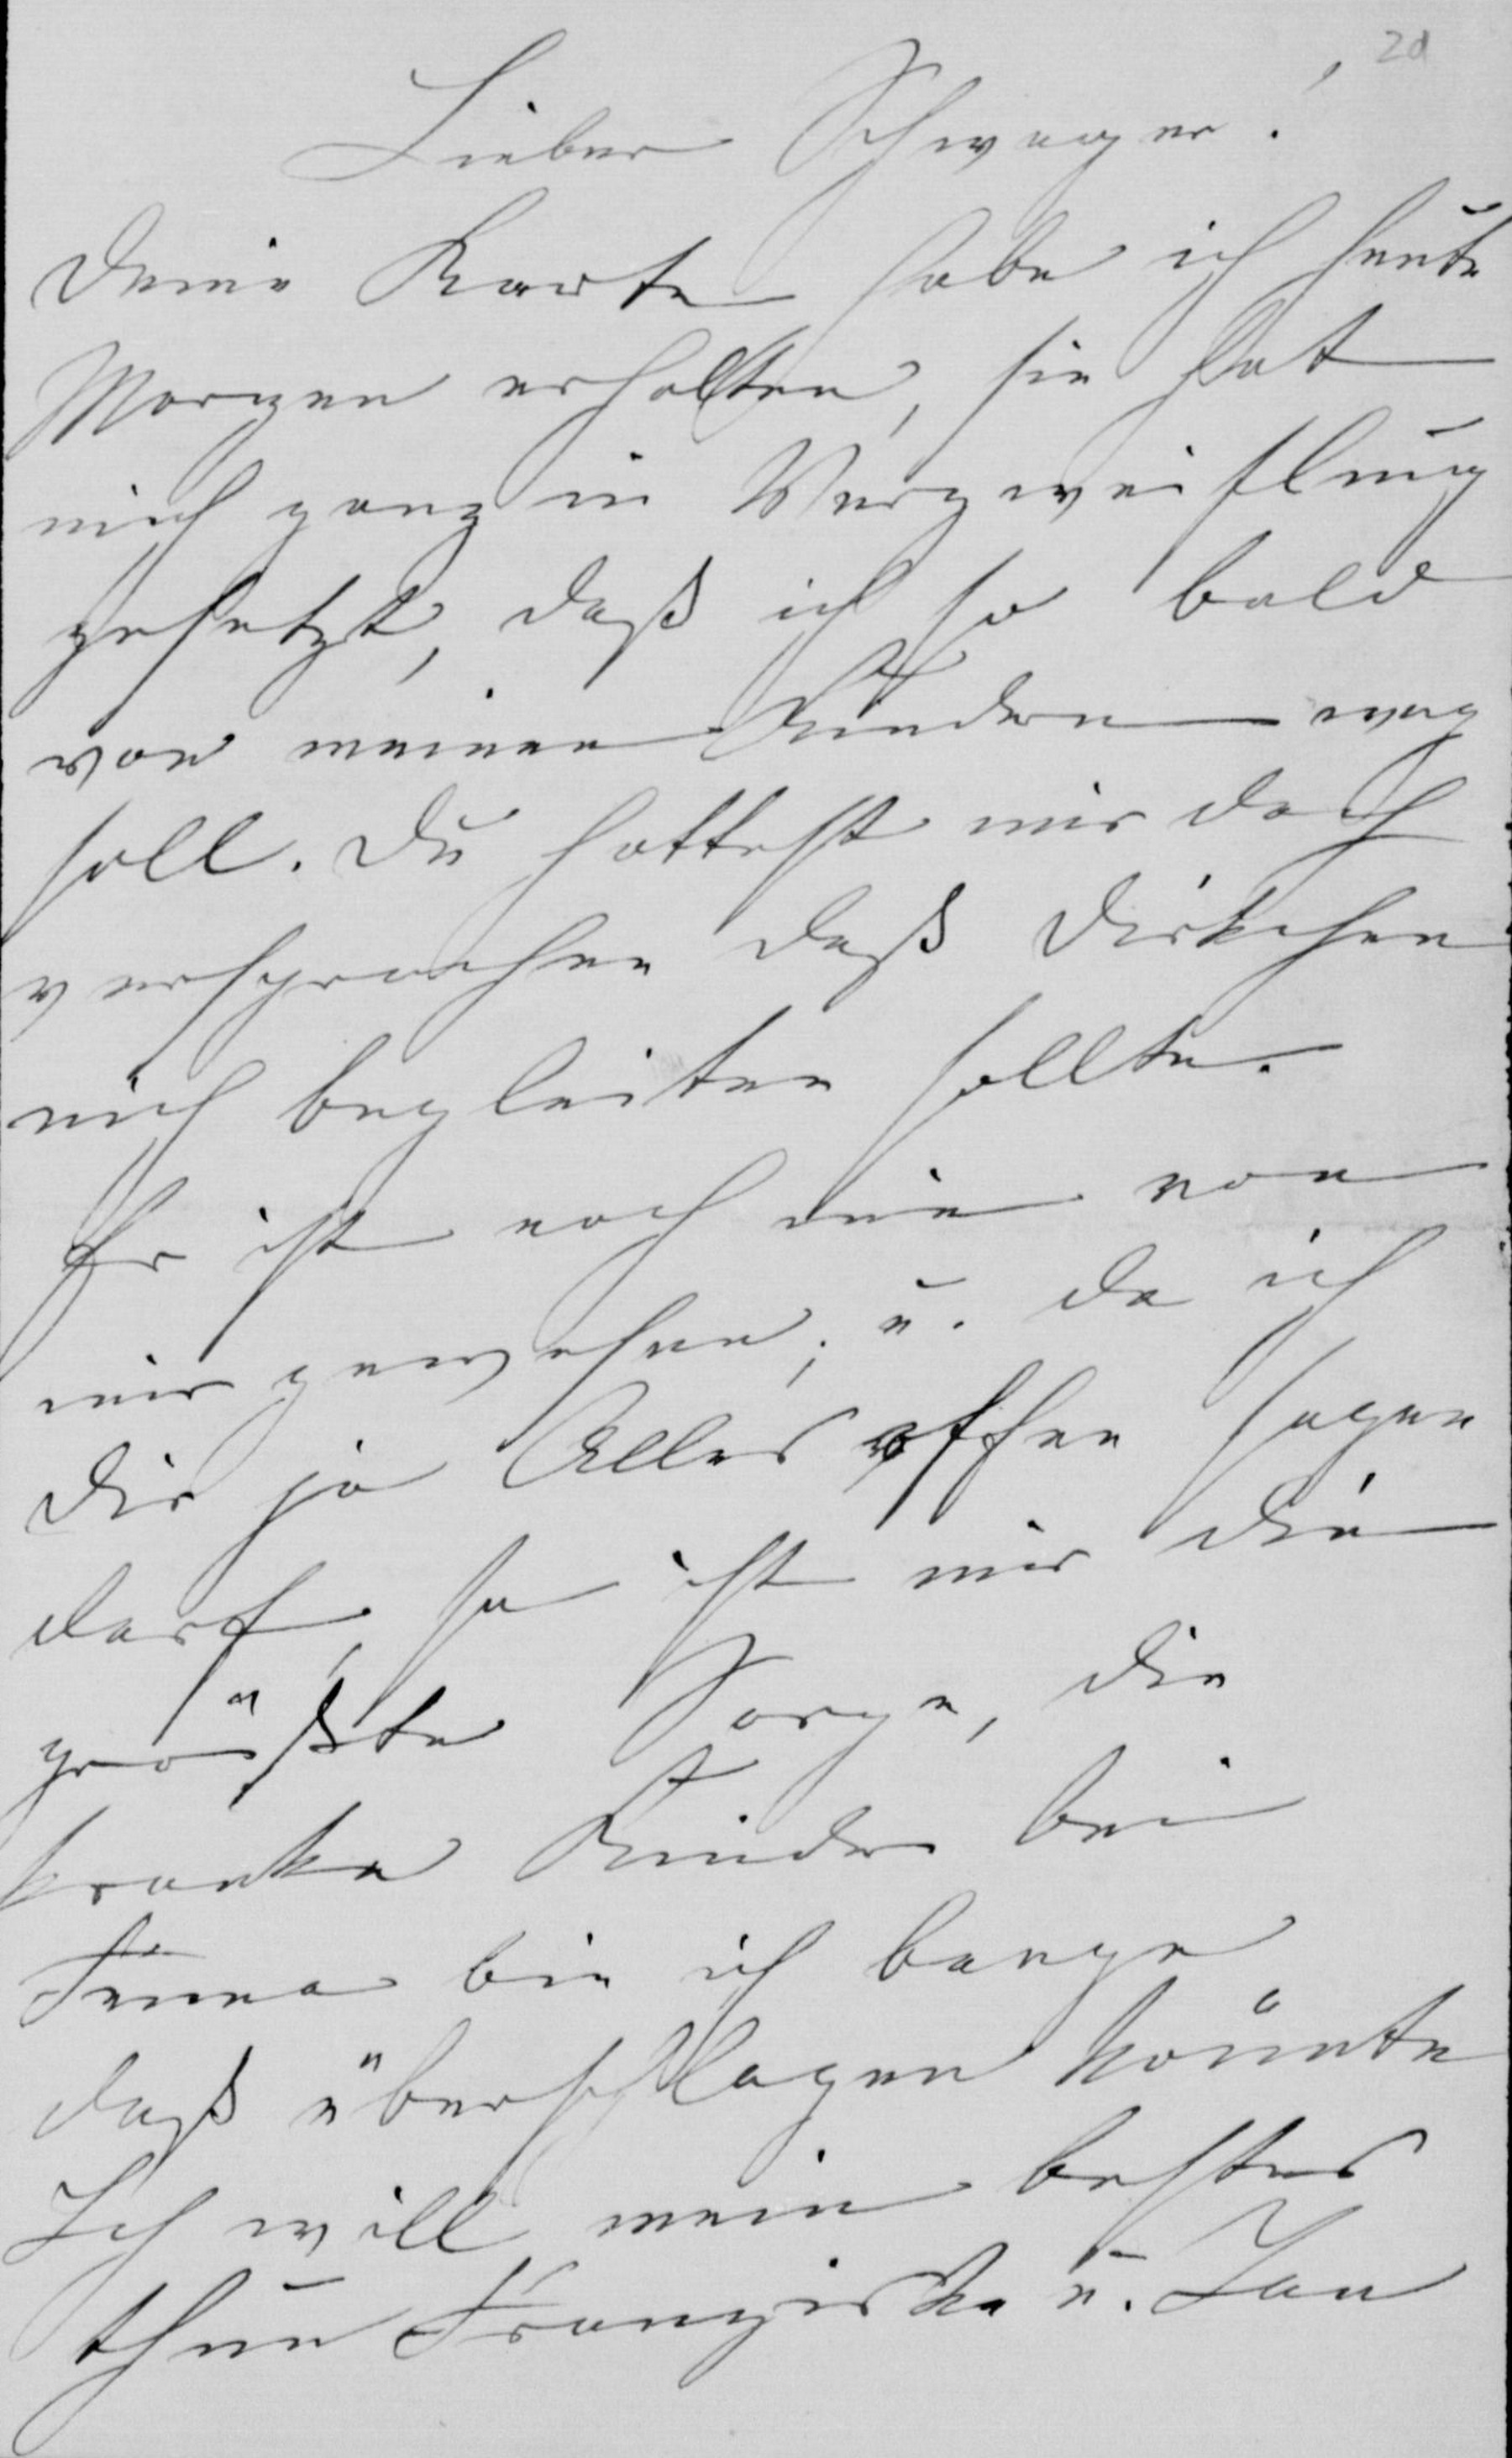 20
Lieber Schwager!
Deine Karte habe ich heute
Morgen erhalten, sie hat
mich ganz in Verzweiflung
gesetzt, daß ich so bald
von meinen Kindern weg
soll. Du hattest mir doch
versprochen daß Dirkchen
mich begleiten sollte.
Er ist noch nie von
mir gewesen; u. da ich
Dir ja Alles offen sagen
darf, so ist mir die
größte Sorge, die
kranke Kinder bei
Tenna bin ich bange
daß überschlagen könnte
Ich will mein bestes
thun Franziska u. Jan